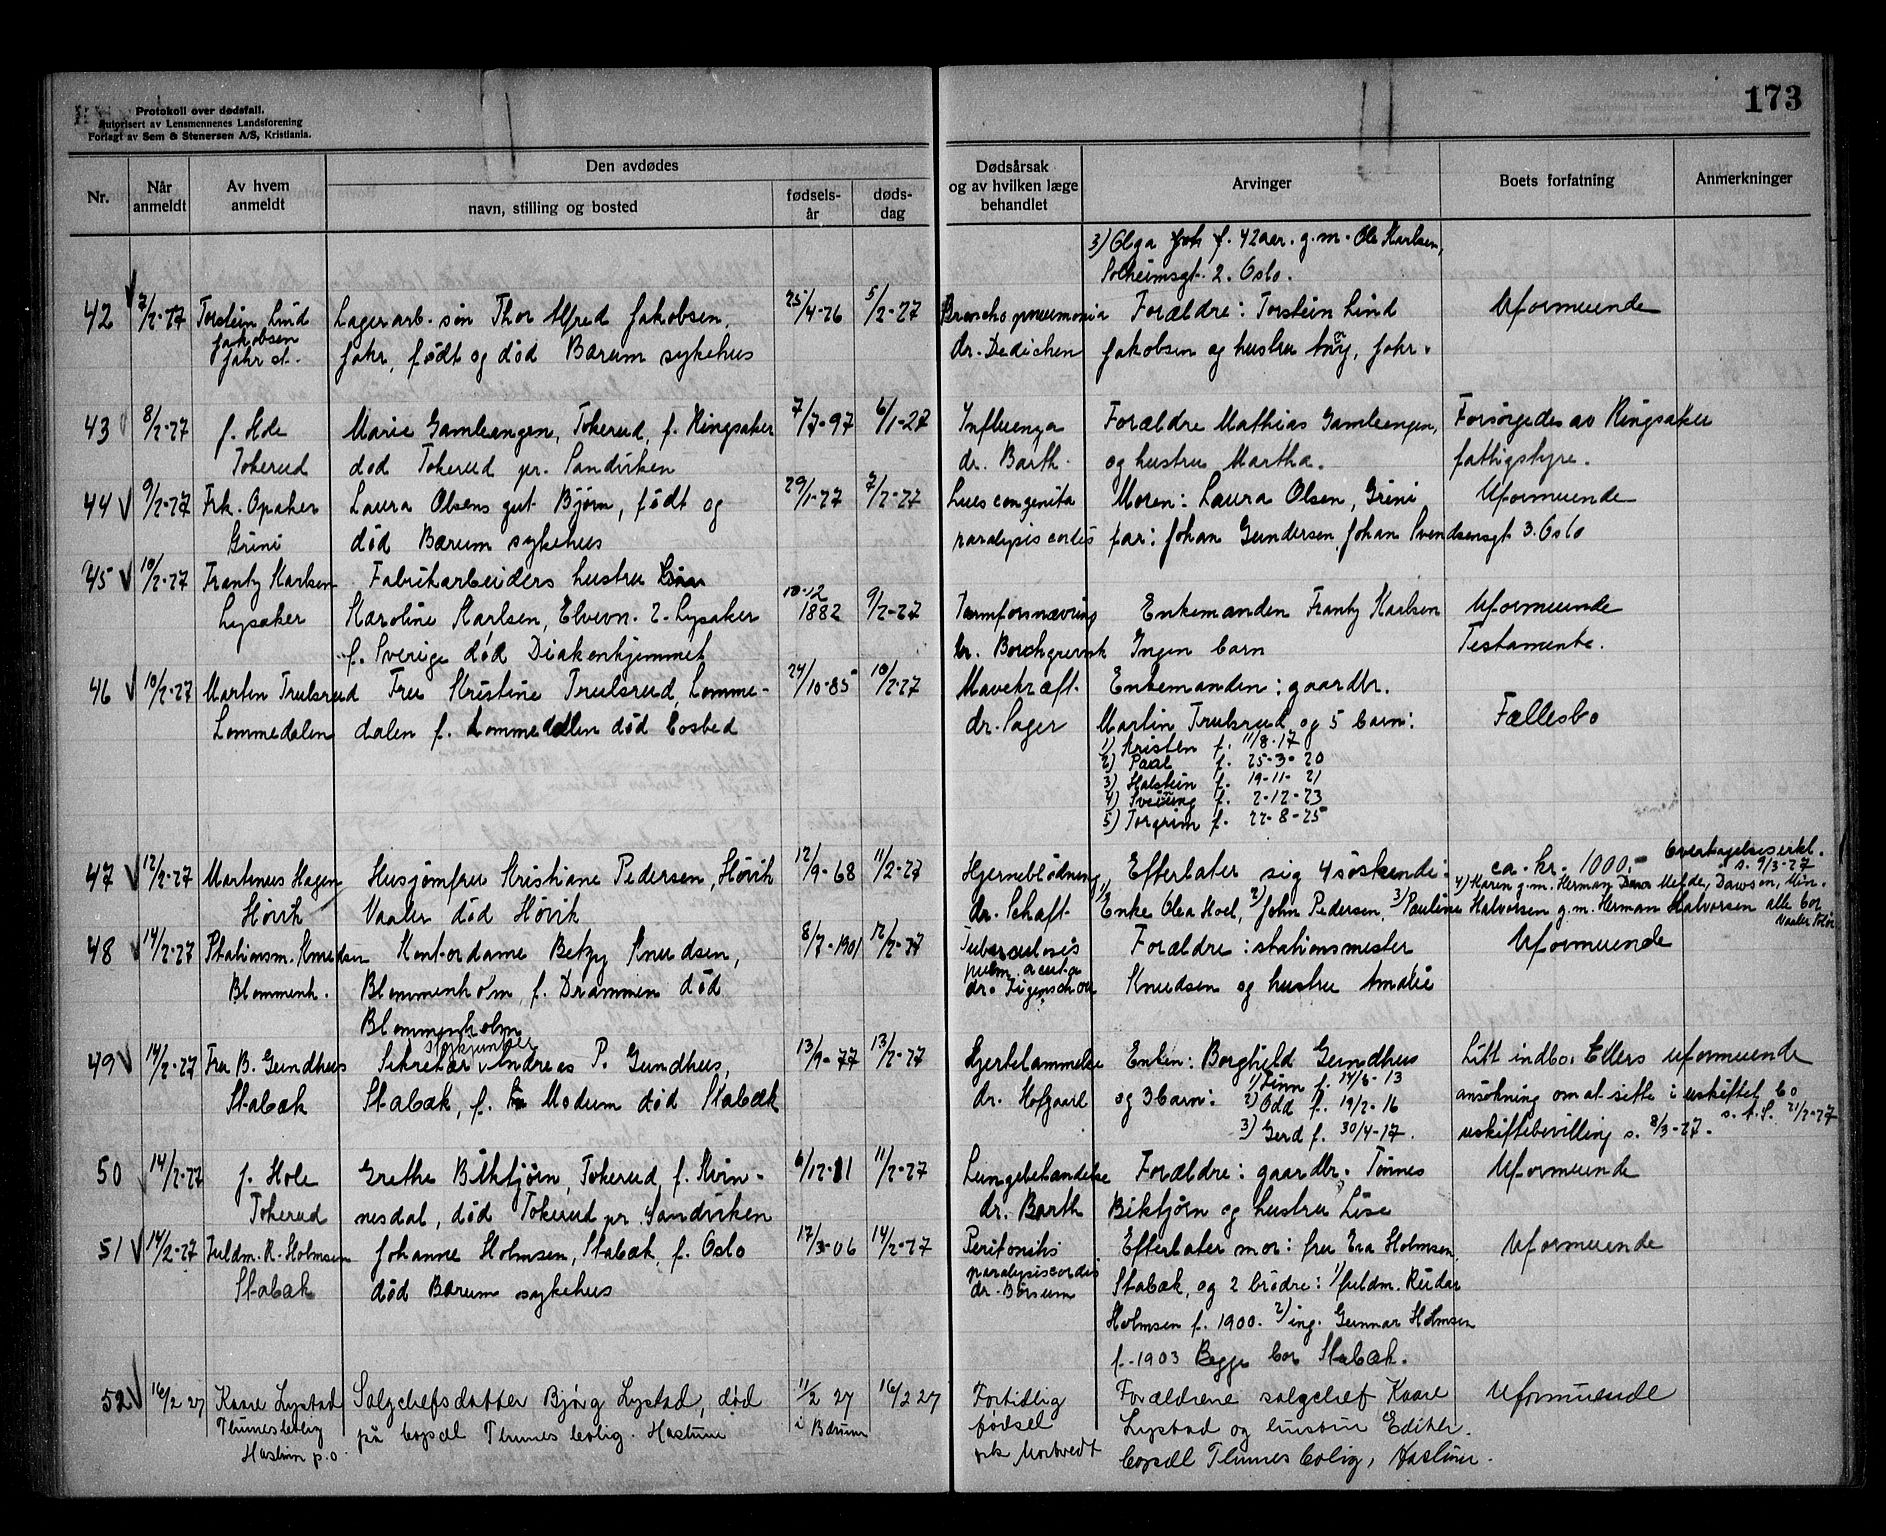 173
Protokoll over dødsfall.
Autorisert av Lensmennenes Landsforening
Forlagt av Sem & Stenersen A/S, Kristiania.
Nr.
Når anmeldt
Av hvem anmeldt
Den avdødes
navn, stilling og bosted
fødsels-år
døds-dag
Dødsårsak og av hvilken læge behandlet
Arvinger
Boets forfatning
Anmerkninger
3) Olga f. 42 aar. g.m. Ole Karlsen,
Solheimsgt. 2. Oslo.
42 7/2-27 Torstein Lind Lagerarb. søn Thor Alfred Jakobsen, 25/4-26 5/2-27 Bronchopneumonia Forældre: Torstein Lind Uformuende
Jakobsen
Jahr st. Jahr, født og død Bærum sykehus dr. Dedichen Jakobsen og hustru Any, Jahr.
43 8/2-27 J. Hole Marie Gamleangen, Tokerud, f. Ringsaker 7/7-97 6/1-27 Influenza Forældre Mathias Gamleengen, Forsørgedes av Ringsaker
Tokerud død Tokerud pr. Sandviken dr. Barth. og hustru Martha. fattigstyre.
44 9/2-27 Frk. Opaker Laura Olsens gut Bjørn, født og 29/1-27 7/2-27 Lues congenita Moren: Laura Olsen, Grini Uformuende
Grini død Bærum sykehus paralysis cordis far: Johan Gundersen, Johan Svendsensgt 3. Oslo
45 10/2-27 Frantz Karlsen Fabrikarbeiders hustru
Lysaker Karoline Karlsen, Elvevn. 2. Lysaker 10-12 1882 9/2-27 Tarmforsnævring Enkemanden Frantz Karlsen Uformuende
f. Sverige død Diakonhjemmet dr. Borchgrevink Ingen barn Testamente.
46 10/2-27 Marten Trulsrud Fru Kristine Trulsrud, Lomme- 24/10-85 10/2-27 Mavekræft. Enkemanden: gaardbr.
Lommedalen dalen f. Lommedalen død bosted dr. Sager Martin Trulsrud og 5 barn: Fællesbo
1) Kristen f. 11/8-17
2) Paal f. 25-3-20
3) Halstein f. 19-11-21
4) Sveinung f. 2-12-23
5) Torgrim f. 22-8-25
47 12/2-27 Martinus Hagen Husjomfru Kristiane Pedersen, Høvik 12/9-68 11/2-27 Hjerneblødning, Efterlater sig 4 søskende: ca. kr. 1000,- Overtagelseserkl.
s. 9/3-27
4) Karen g.m. Herman Melde, Dawson, Min.
Høvik Vaaler død Høvik dr. Schaft. 1) Enke Olea Hoel, 2) John Pedersen, 3) Pauline Halvorsen g.m. Herman Halvorsen alle bor
Vaaler
48 14/2-27 Stationsm. Knudsen Kontordame Betzy Knudsen, 8/7-1901 12/2-27 Tuberculosis Forældre: stationsmester Uformuende
pulm. acuta
Blommenh. Blommenholm, f. Drammen død dr. Jügenschou Knudsen og hustru Amalie
Blommenholm
49 14/2-27 Fru B. Gundhus Sekretær Andreas P. Gundhus, 13/9-77 13/2-27 Hjertelammelse Enken: Borghild Gundhus Litt indbo. Ellers uformuende
Stabæk Stabæk, f. Modum død Stabæk dr. Hofgaard og 3 barn: 1) Finn f. 14/6-13 ansøkning om at sitte i uskiftet bo
2) Odd f. 19/2-16 s. d. S. 21/2-27
3) Gerd f. 30/4-17. uskiftebevilling s. 8/3-27.
50 14/2-27 J. Hole Grethe Bilktjørn, Tokerud, f. Kvin- 6/12-11 11/2-27 Lungebetændelse Forældre: gaardbr. Tønnes Uformuende
Tokerud nesdal, død Tokerud pr. Sandviken dr. Barth Biktjørn og hustru Lise
51 14/2-27 Fuldm. R. Holmsen Johanne Holmsen, Stabæk, f. Oslo 17/3-06 14/2-27 Peritonitis Efterlater mor: fru Eva Holmsen, Uformuende
paralysis cordis
Stabæk død Bærum sykehus dr. Børsum Stabæk, og 2 brødre: 1) fuldm. Reidar
Holmsen f. 1900. 2) ing. Gunnar Holmsen
f. 1903 Begge bor Stabæk.
52 16/2 27 Kaare Lystad Salgchefsdatter Bjørg Lystad, død 11/2 27 16/2 27 Fortidlig Forældrene salgchef Kaare Uformuende
Thunes bolig på bopæl Thunes bolig. Haslum i Bærum fødsel Lystad og hustru Edith.
Haslum p.o bopæl Thunes bolig, Haslum.